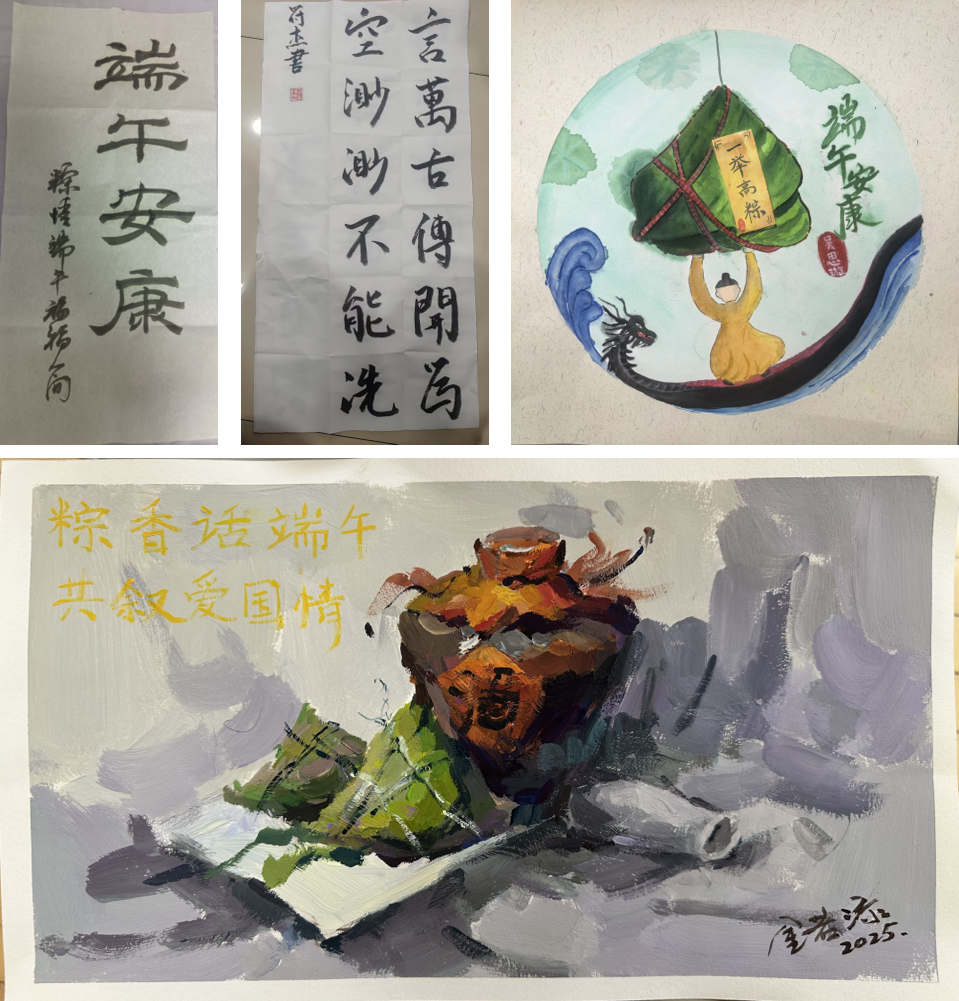 端午安康
粽情端午福人间
言萬古傳開為
空渺渺不能洗
符杰書
端午安康
一举高粽
吴思
粽香话端午
共叙爱国情
酒
金若源
2025.